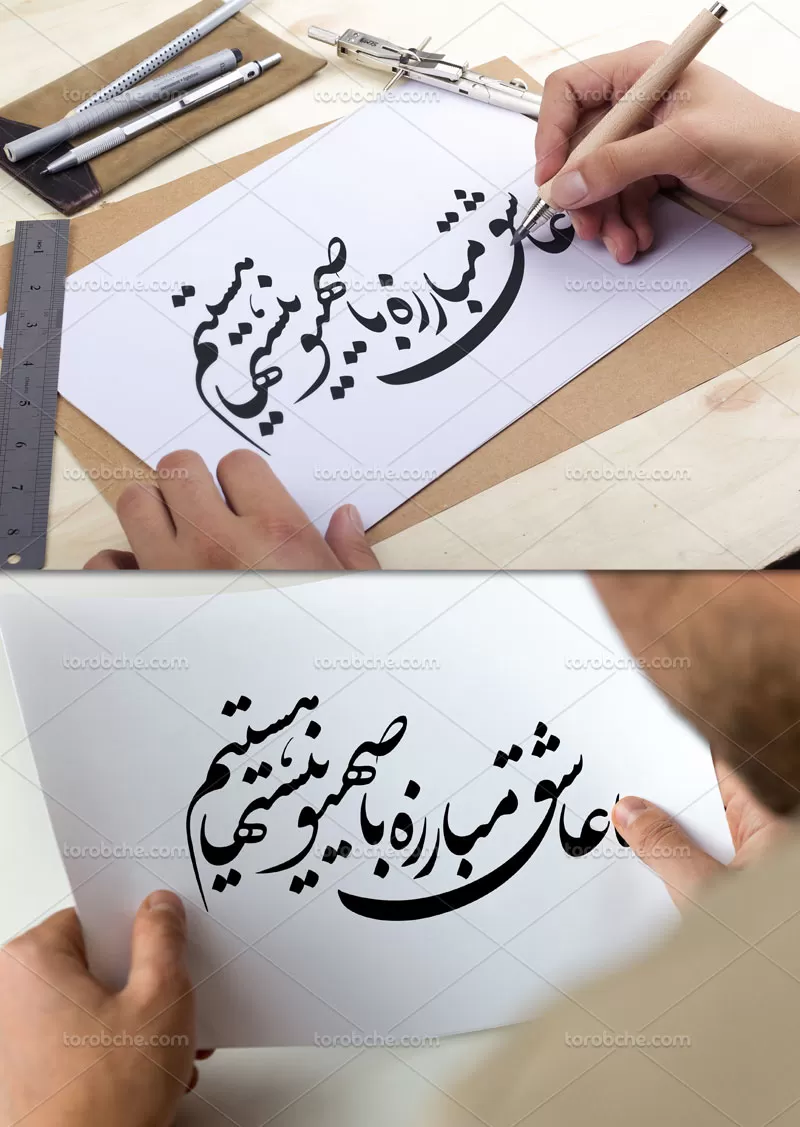 torobche.com torobche.com torobche.com
عاشق مبارزه با صهیونیستها هستیم
torobche.com torobche.com torobche.com
INCH 1 2 3 4 5 6 7 8
torobche.com torobche.com torobche.com
torobche.com torobche.com torobche.com
عاشق مبارزه با صهیونیستها هستیم
torobche.com torobche.com torobche.com
torobche.com torobche.com torobche.com